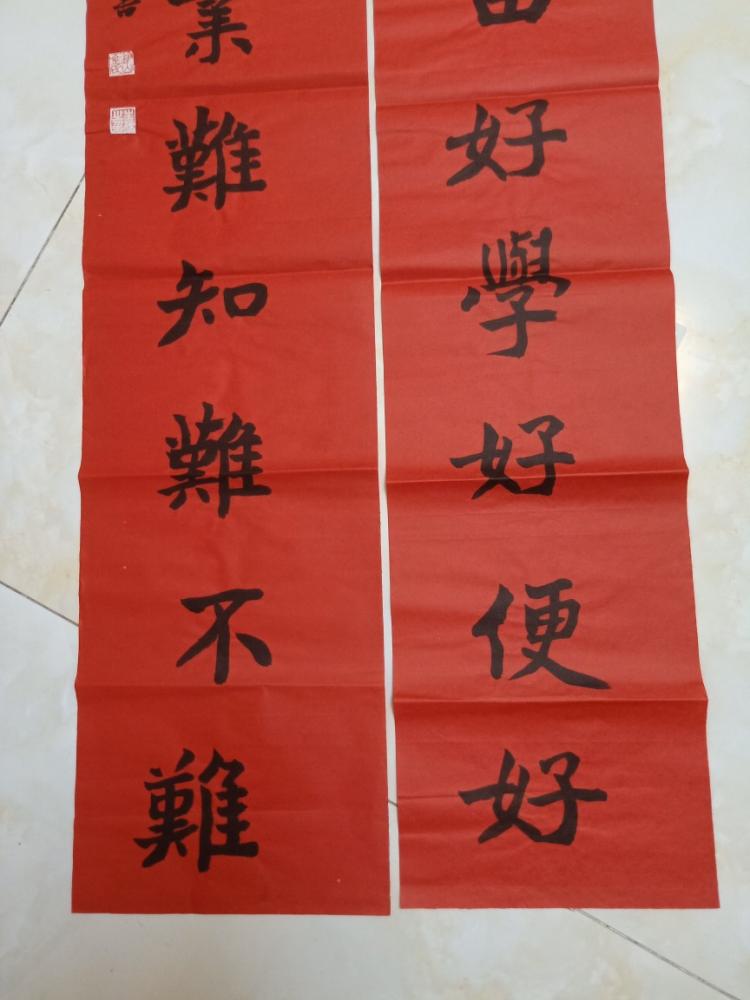 田好學好便好
業難知難不難